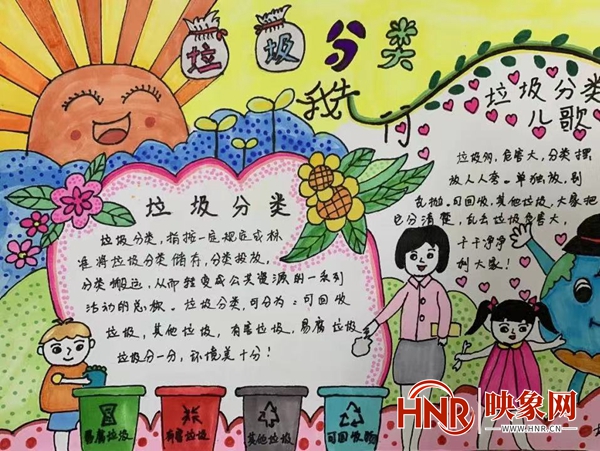 垃圾分类
我先行
垃圾分类
垃圾分类，指按一定规定或标
准将垃圾分类储存，分类投放，
分类搬运，从而转变成公共资源的一系列
活动的总称。垃圾分类，可分为：可回收
垃圾，其他垃圾，有害垃圾，易腐垃圾
垃圾分一分，环境美十分！
垃圾分类
儿歌
垃圾多，危害大，分类摆
放人人夸。单独放，别
乱抛。可回收，其他垃圾，大家把
它分清楚，乱丢垃圾危害大，
干干净净
利大家！
易腐垃圾
有害垃圾
其他垃圾
可回收物
HNR 映象网
WWW.HNR.CN